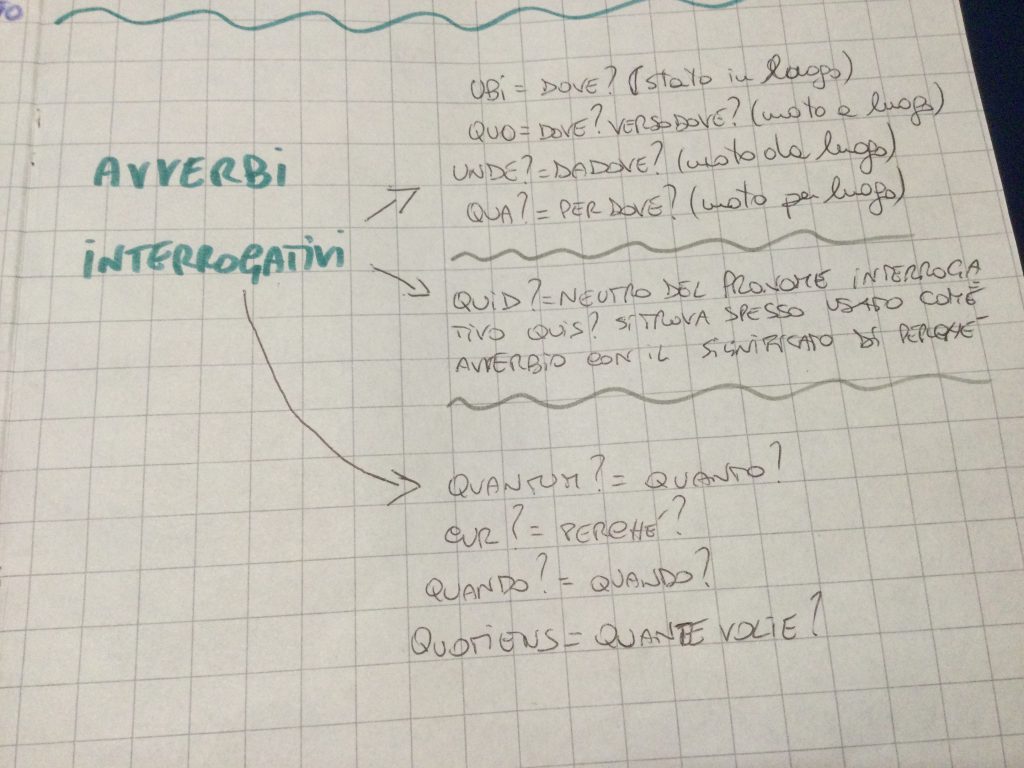 AVVERBI
INTERROGATIVI
UBI = DOVE? (stato in luogo)
QUO = DOVE? VERSO DOVE? (moto a luogo)
UNDE? = DA DOVE? (moto da luogo)
QUA? = PER DOVE? (moto per luogo)
QUID? = NEUTRO DEL PRONOME INTERROGA
TIVO QUIS? SI TROVA SPESSO USATO COME
AVVERBIO CON IL SIGNIFICATO DI PERCHE'
QUANTUM? = QUANTO?
CUR? = PERCHE'?
QUANDO? = QUANDO?
QUOTIENS = QUANTE VOLTE?